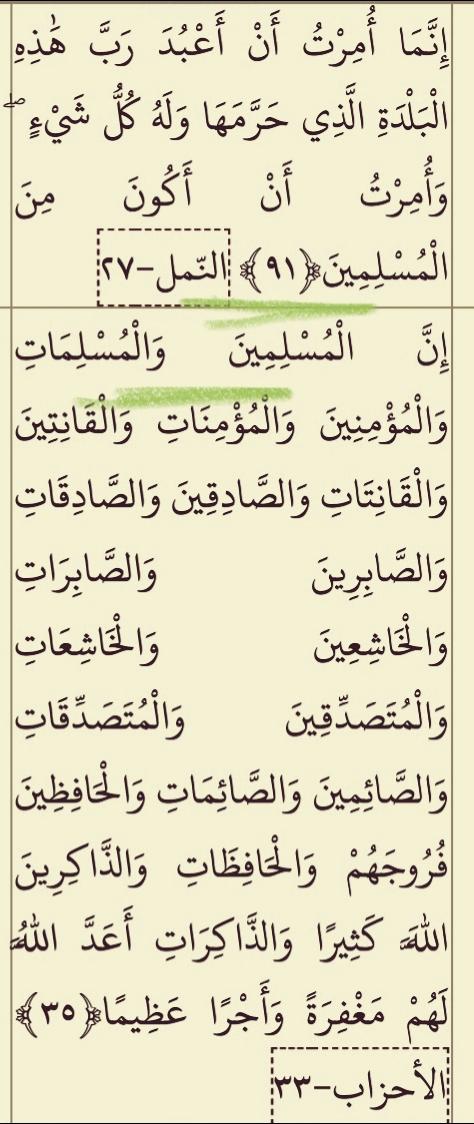 إِنَّمَا أُمِرْتُ أَنْ أَعْبُدَ رَبَّ هَٰذِهِ
الْبَلْدَةِ الَّذِي حَرَّمَهَا وَلَهُ كُلُّ شَيْءٍ ۖ
وَأُمِرْتُ أَنْ أَكُونَ مِنَ
الْمُسْلِمِينَ﴿٩١﴾ النّمل-٢٧
إِنَّ الْمُسْلِمِينَ وَالْمُسْلِمَاتِ
وَالْمُؤْمِنِينَ وَالْمُؤْمِنَاتِ وَالْقَانِتِينَ
وَالْقَانِتَاتِ وَالصَّادِقِينَ وَالصَّادِقَاتِ
وَالصَّابِرِينَ وَالصَّابِرَاتِ
وَالْخَاشِعِينَ وَالْخَاشِعَاتِ
وَالْمُتَصَدِّقِينَ وَالْمُتَصَدِّقَاتِ
وَالصَّائِمِينَ وَالصَّائِمَاتِ وَالْحَافِظِينَ
فُرُوجَهُمْ وَالْحَافِظَاتِ وَالذَّاكِرِينَ
اللَّهَ كَثِيرًا وَالذَّاكِرَاتِ أَعَدَّ اللَّهُ
لَهُمْ مَغْفِرَةً وَأَجْرًا عَظِيمًا﴿٣٥﴾
الأحزاب-٣٣